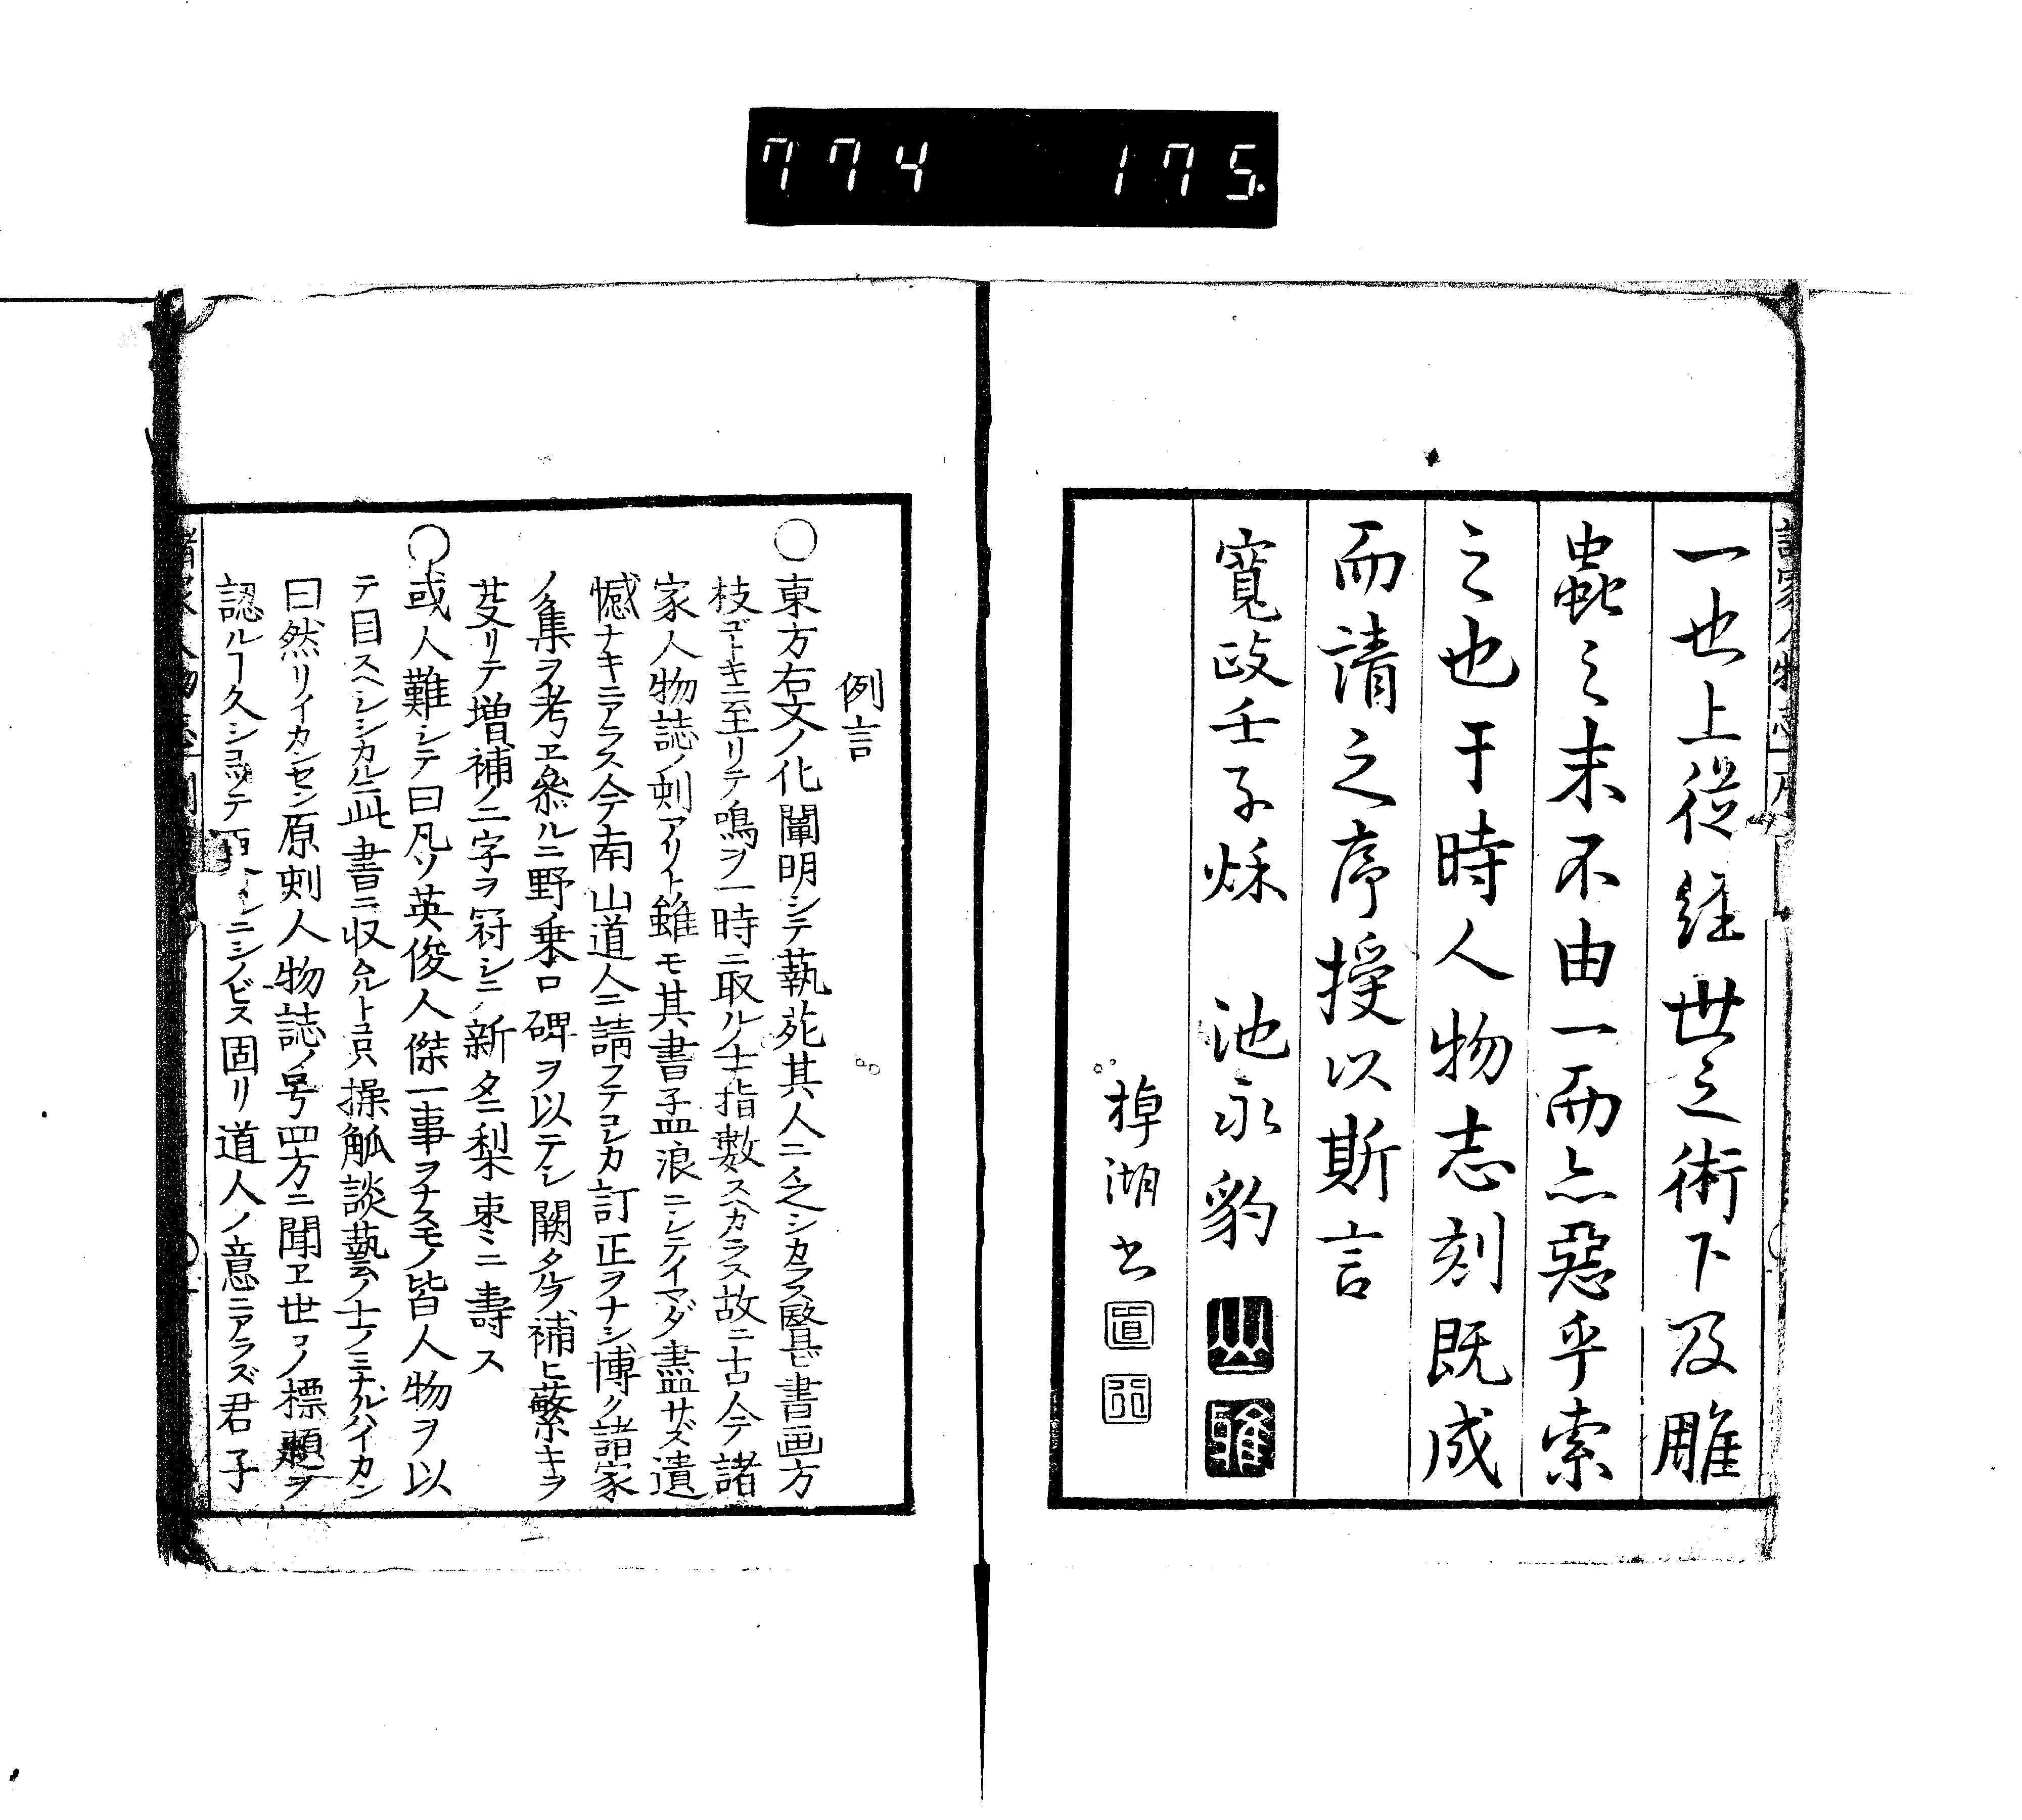 774 175
一也上從經世之術下及雕
蟲之末不由一而亦惡乎索
之也于時人物志刻既成
而請之序授以斯言
寛政壬子秌 池永豹
棹湖書
例言
○東方右文ノ化闡明シテ藝苑其人ニ乏シカラス醫巫書画方
枝ゴトキニ至リテ鳴ヲ一時ニ取ルノ士指數スヘカラス故ニ古今諸
家人物誌ノ刻アリト雖モ其書孟浪ニシテイマダ盡サズ遺
憾ナキニアラス今南山道人ニ請フテコレカ訂正ヲナシ博ク諸家
ノ集ヲ考ヱ叅ルニ野乗口碑ヲ以テシ闕タルヲ補ヒ蘩キヲ
芟リテ増補ノ二字ヲ冠シ新タニ梨棗ニ壽ス
○或人難シテ曰凡ソ英俊人傑一事ヲナスモノ皆人物ヲ以
テ目スヘシシカルニ此書ニ収ムル操觚談藝ノ士ノミナルハイカン
曰然リイカンセン原刻人物誌ノ号四方ニ聞ヱ世コノ標題ヲ
認ルヿ久シヨッテ シノビス固リ道人ノ意ニアラズ君子